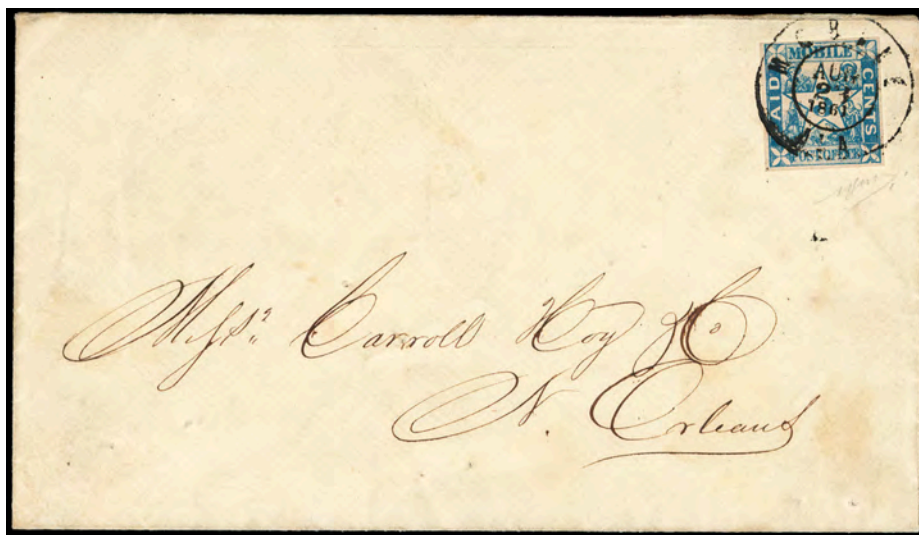 MOBILE
PAID
CENTS
POST OFFICE
MOBILE
AUG
1861
ALA
Messrs Carroll Hoy & Co
N. Orleans